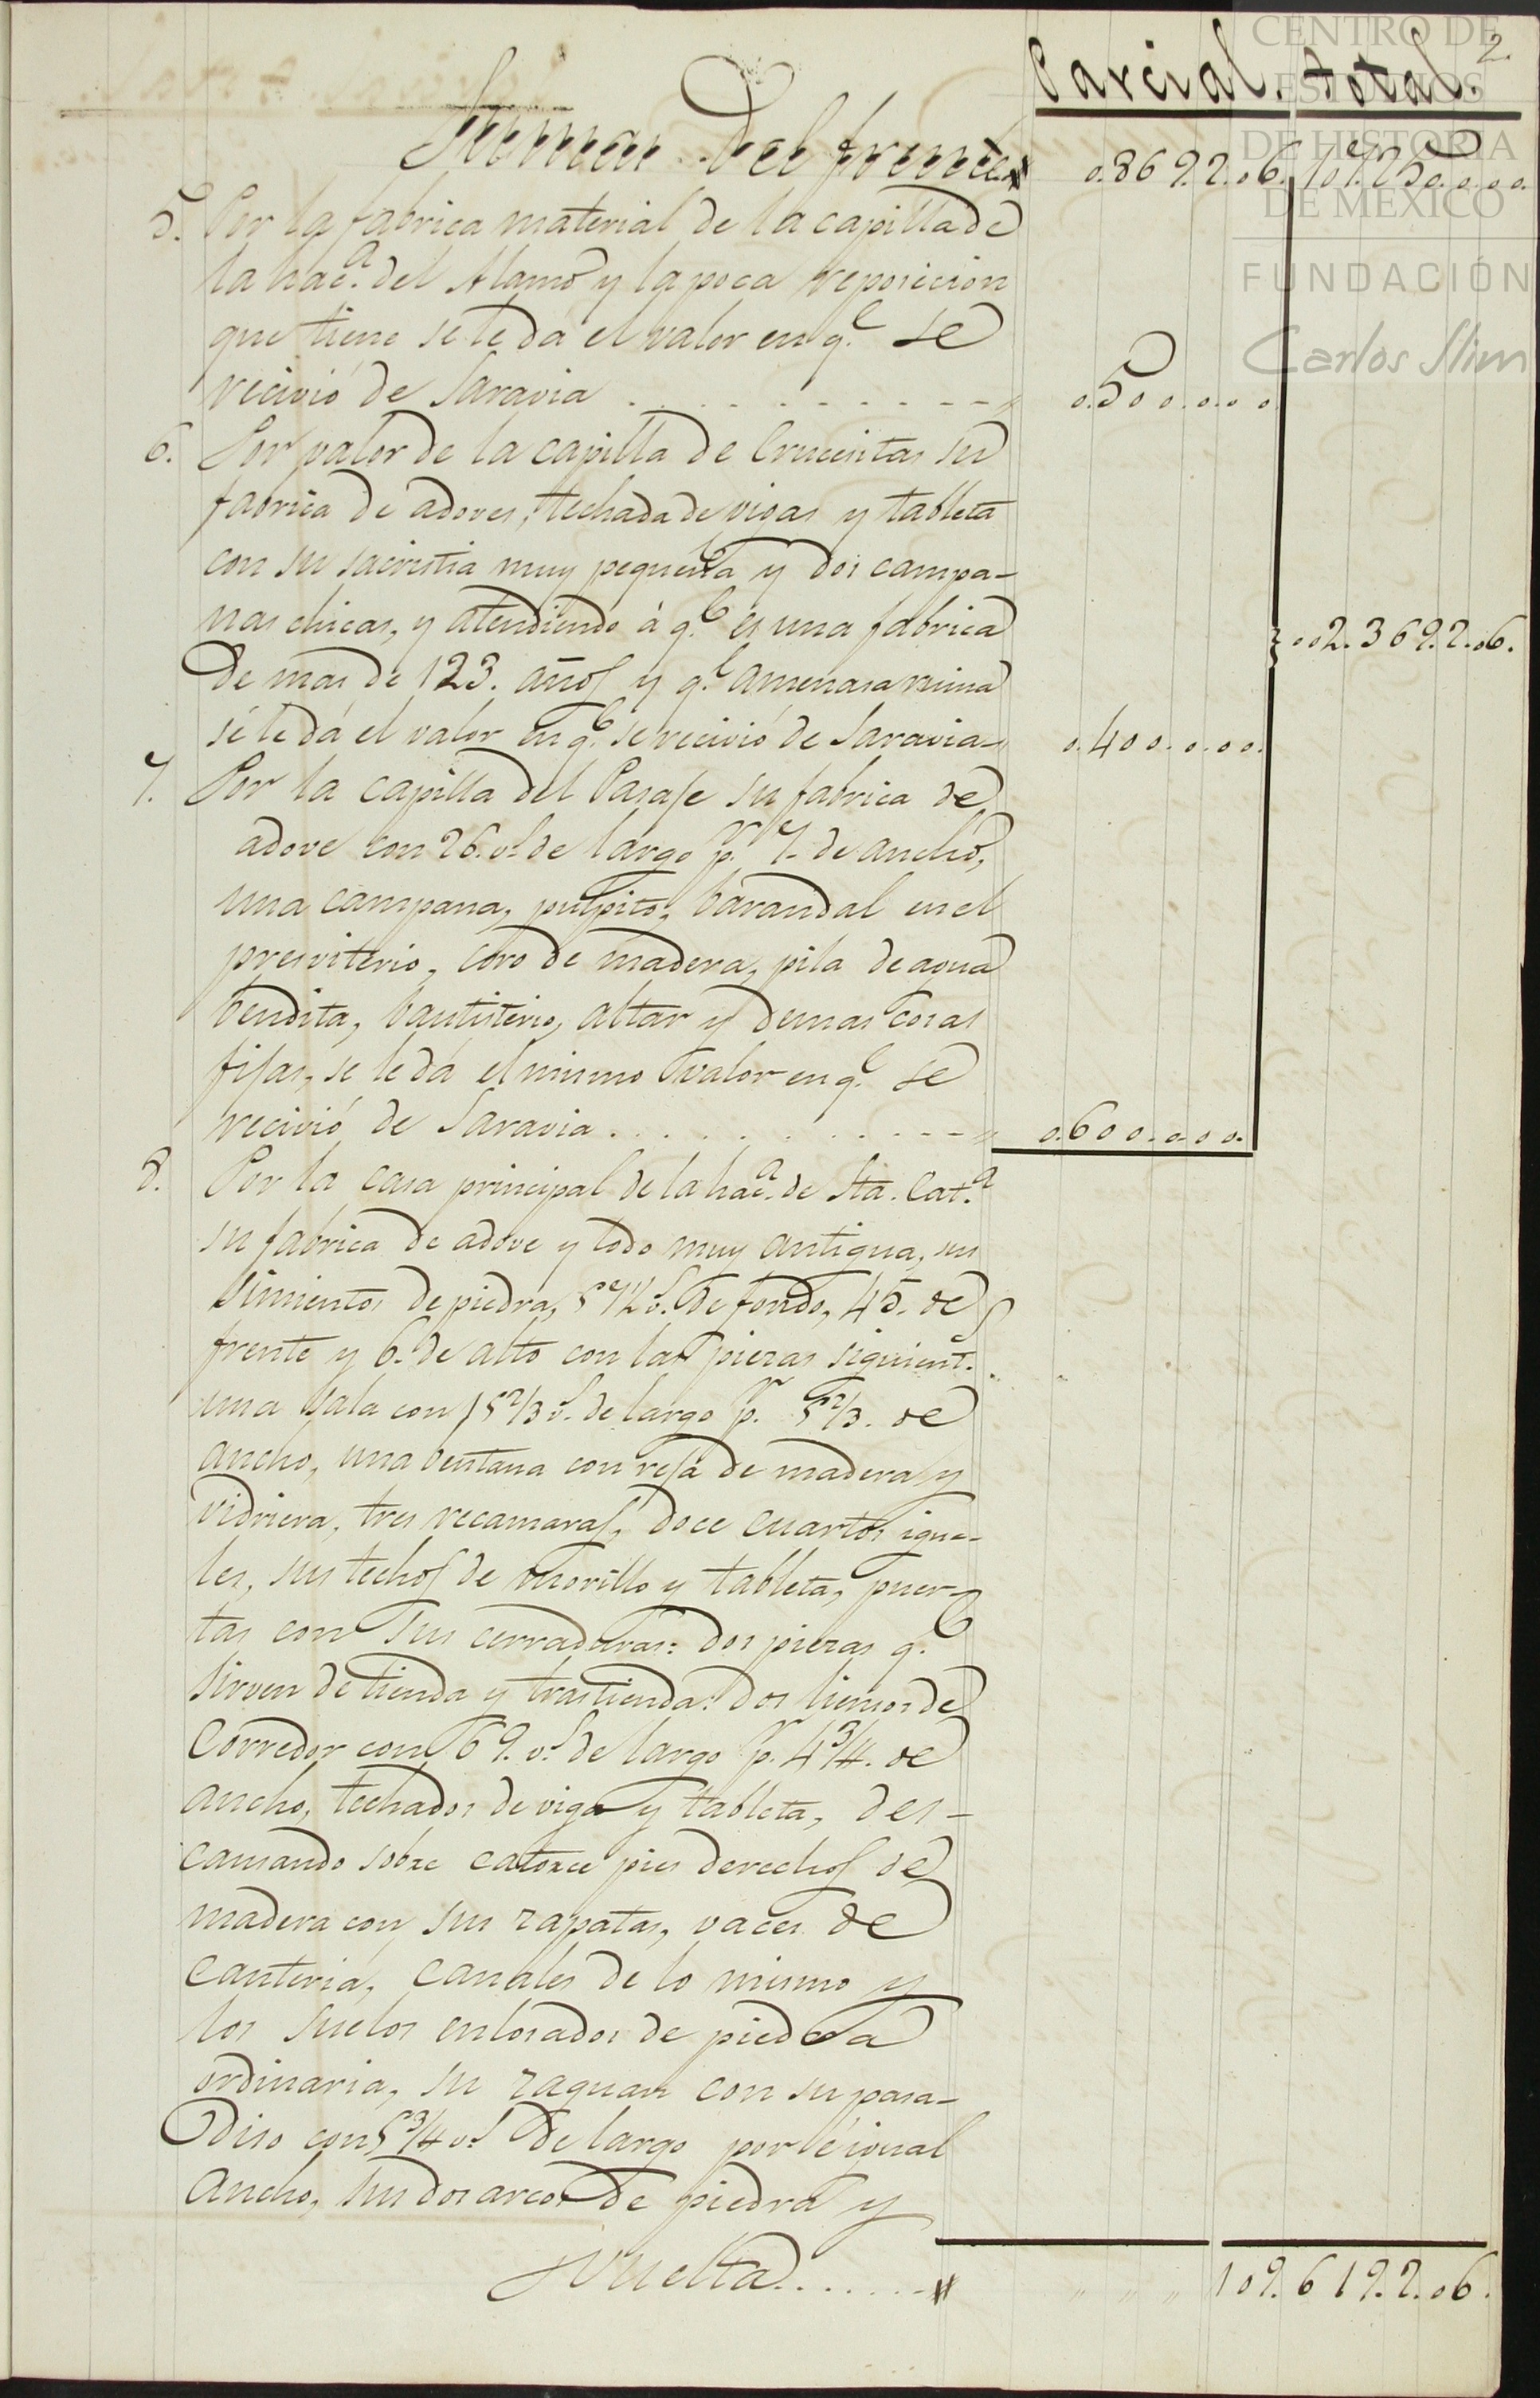 2.
Parcial. total.
Sumas del frente 0.869.2.06. 107.250.0.00.
5. Por la fabrica material de la capilla de
la hacª. del Alamo y la poca reposicion
que tiene se le da el valor en q.e se
recivió de Saravia 0.500.0.00
6. Por valor de la capilla de Cruseitas su
fabrica de adoves, techada de vigas y tableta
con su sacristia muy pequeña y dos campa-
nas chicas, y atendiendo á q.e es una fabrica
de mas de 123. años y q.e amenasa ruina
se le dá el valor en q.e se recivió de Saravia 0.400.0.00.
002.369.2.06.
7. Por la capilla del Pasaje su fabrica de
adove con 26. v.s de largo p.r 7. de ancho,
una campana, pulpito, barandal en el
presviterio, coro de madera, pila de agua
bendita, bautisterio, altar y demas cosas
fijas, se le dá el mismo valor en q.e se
recivió de Saravia 0.600.0.00.
8. Por la casa principal de la hacª. de Sta. Cat.ª
su fabrica de adove y todo muy antigua, sus
simientos de piedra, 57½ v.s de fondo, 45. de
frente y 6. de alto con las piezas siguient.s
una sala con 15⅔ v.s de largo p.r 5⅔. de
ancho, una ventana con reja de madera y
vidriera, tres recamaras, doce cuartos igua-
les, sus techos de morillo y tableta, puer-
tas con sus cerraduras: dos piezas q.e
sirven de tienda y trastienda: dos liensos de
corredor con 69. v.s de largo p.r 4¾. de
ancho, techados de viga y tableta, des-
cansando sobre catorce pies derechos de
madera con sus zapatas, vaces de
canteria, canales de lo mismo y
los suelos enlosados de piedra
ordinaria, su zaguan con su pasa-
diso con 5¾ v.s de largo por é igual
ancho, sus dos arcos de piedra y
Vuelta 109.619.2.06.
CENTRO DE
ESTUDIOS
DE HISTORIA
DE MÉXICO
FUNDACIÓN
Carlos Slim